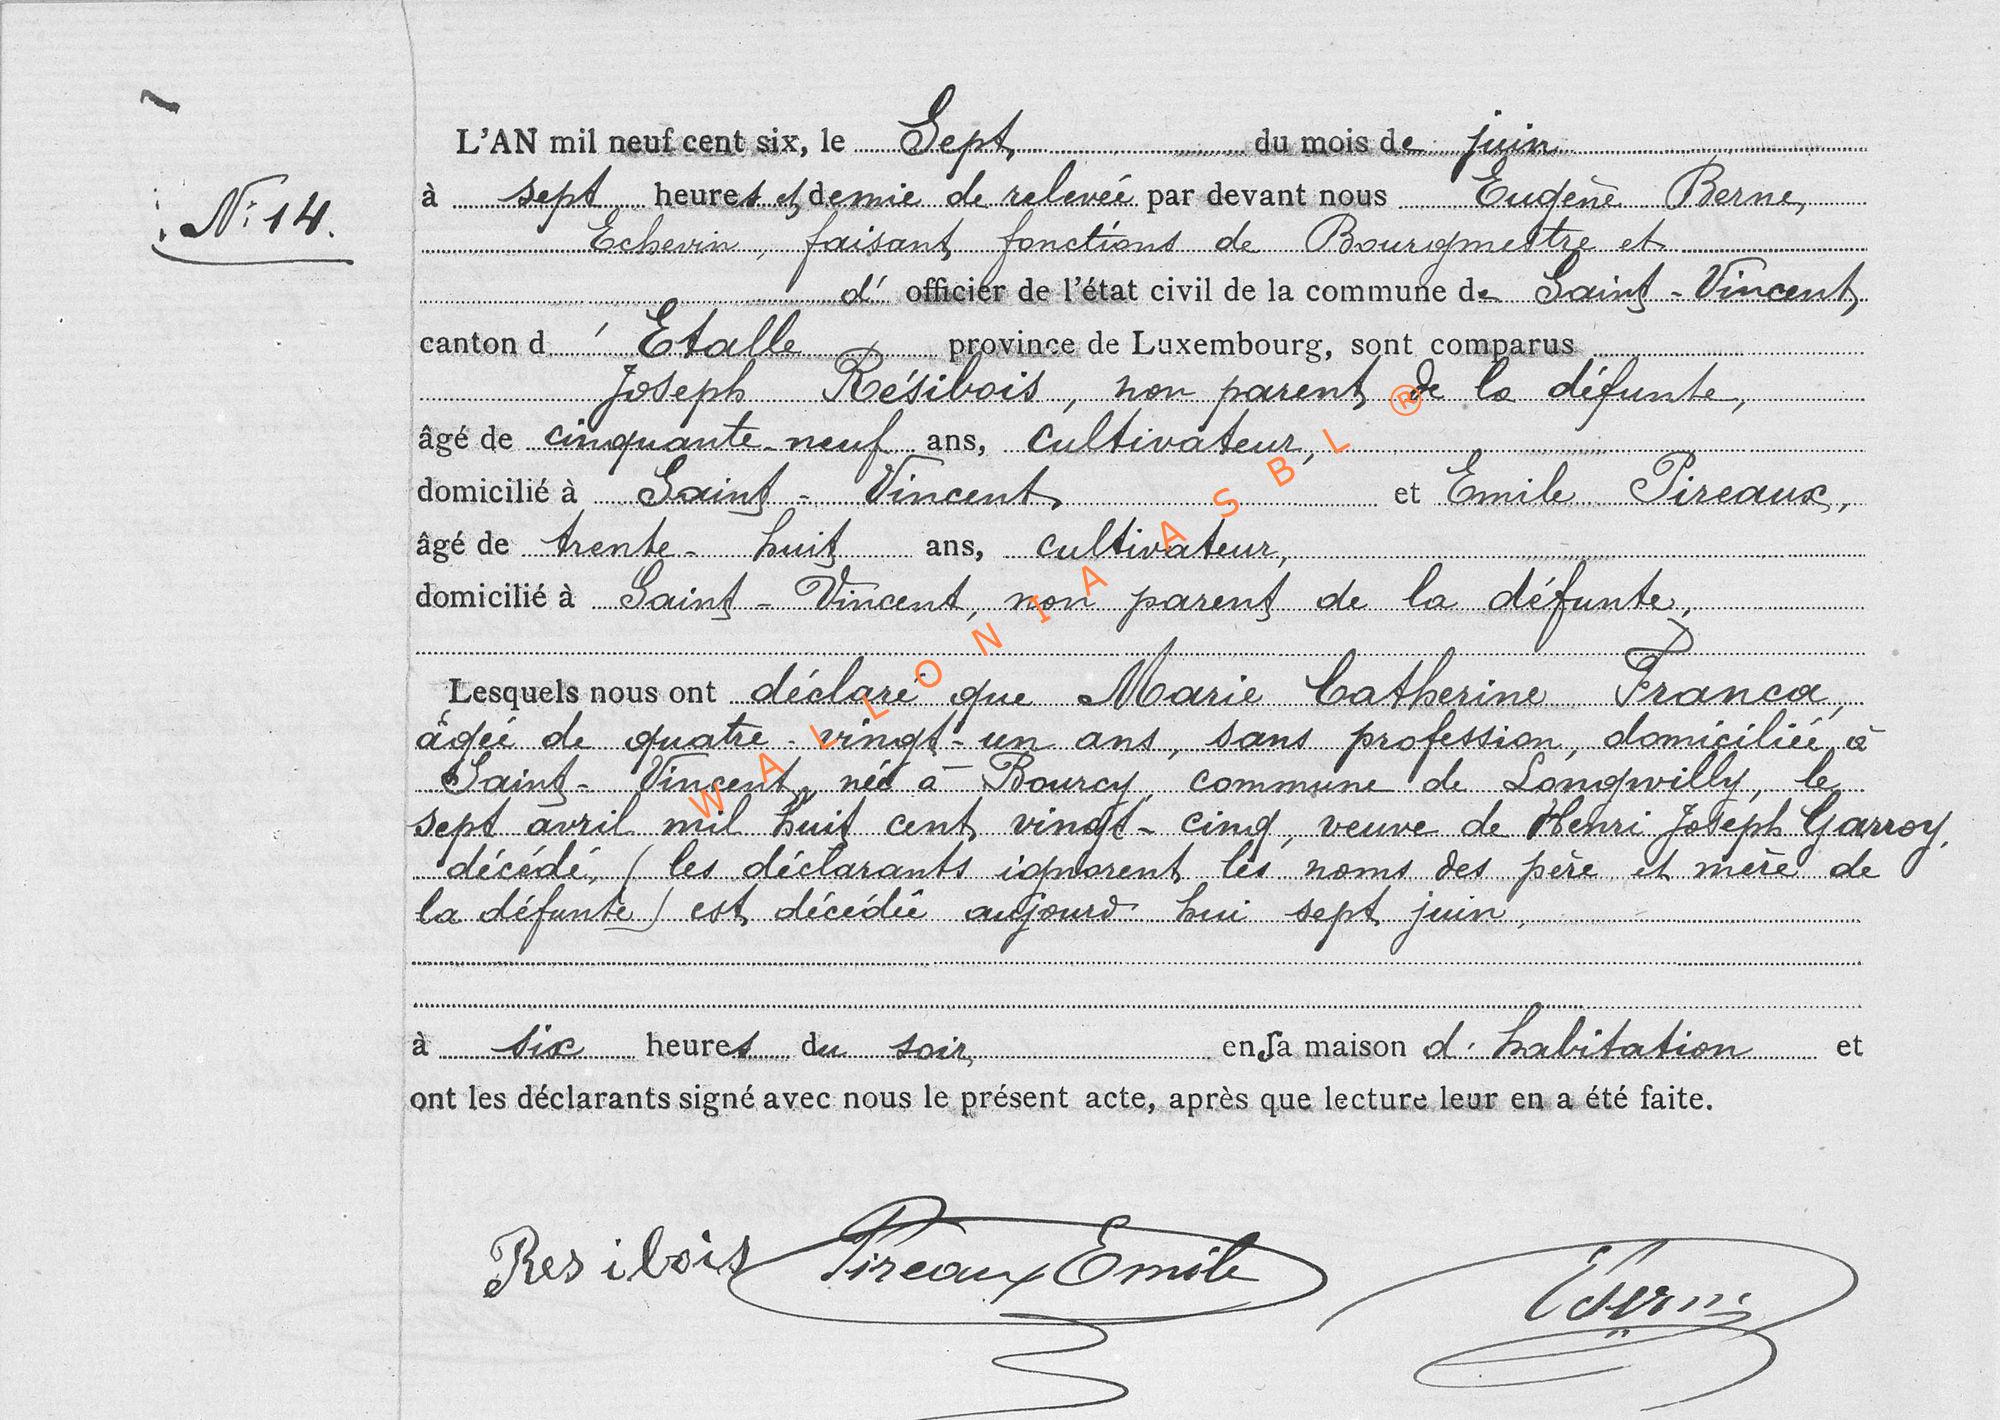 N° 14.
L'AN mil neuf cent six, le Sept du mois de juin
à sept heures et demie de relevée par devant nous Eugène Berne,
Echevin, faisant fonctions de Bourgmestre et
d' officier de l'état civil de la commune de Saint-Vincent,
canton d'Etalle province de Luxembourg, sont comparus
Joseph Résibois, non parent de la défunte,
âgé de cinquante-neuf ans, cultivateur,
domicilié à Saint-Vincent et Emile Pireaux,
âgé de trente-huit ans, cultivateur,
domicilié à Saint-Vincent, non parent de la défunte,
Lesquels nous ont déclaré que Marie Catherine Franca,
âgée de quatre-vingt-un ans, sans profession, domiciliée à
Saint-Vincent, née à Bourcy, commune de Longwilly, le
sept avril mil huit cent vingt-cinq, veuve de Henri Joseph Garroy,
décédé, (les déclarants ignorent les noms des père et mère de
la défunte) est décédée aujourd'hui sept juin,
à six heures du soir, en sa maison d'habitation et
ont les déclarants signé avec nous le présent acte, après que lecture leur en a été faite.
Resibois Pireaux Emile EBerne
WALLONIA ASBL ®